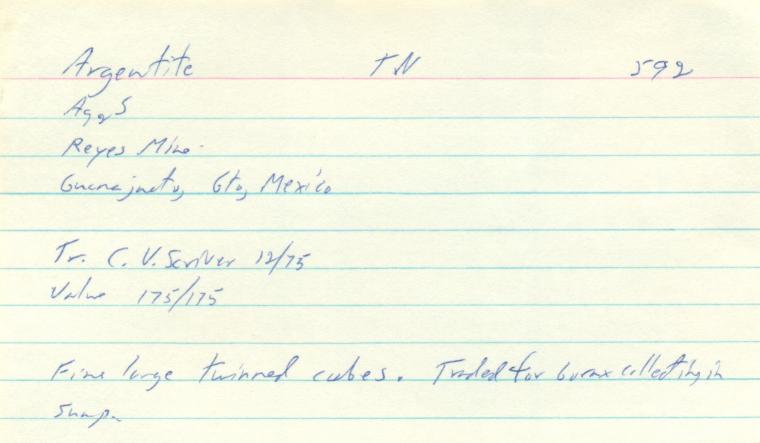 Argentite TN 592
Ag2S
Reyes Mine
Guanajuato, Gto, Mexico
Tr. C. V. Scriver 12/75
Value 175/175
Fine large twinned cubes. Traded for borax collecting in